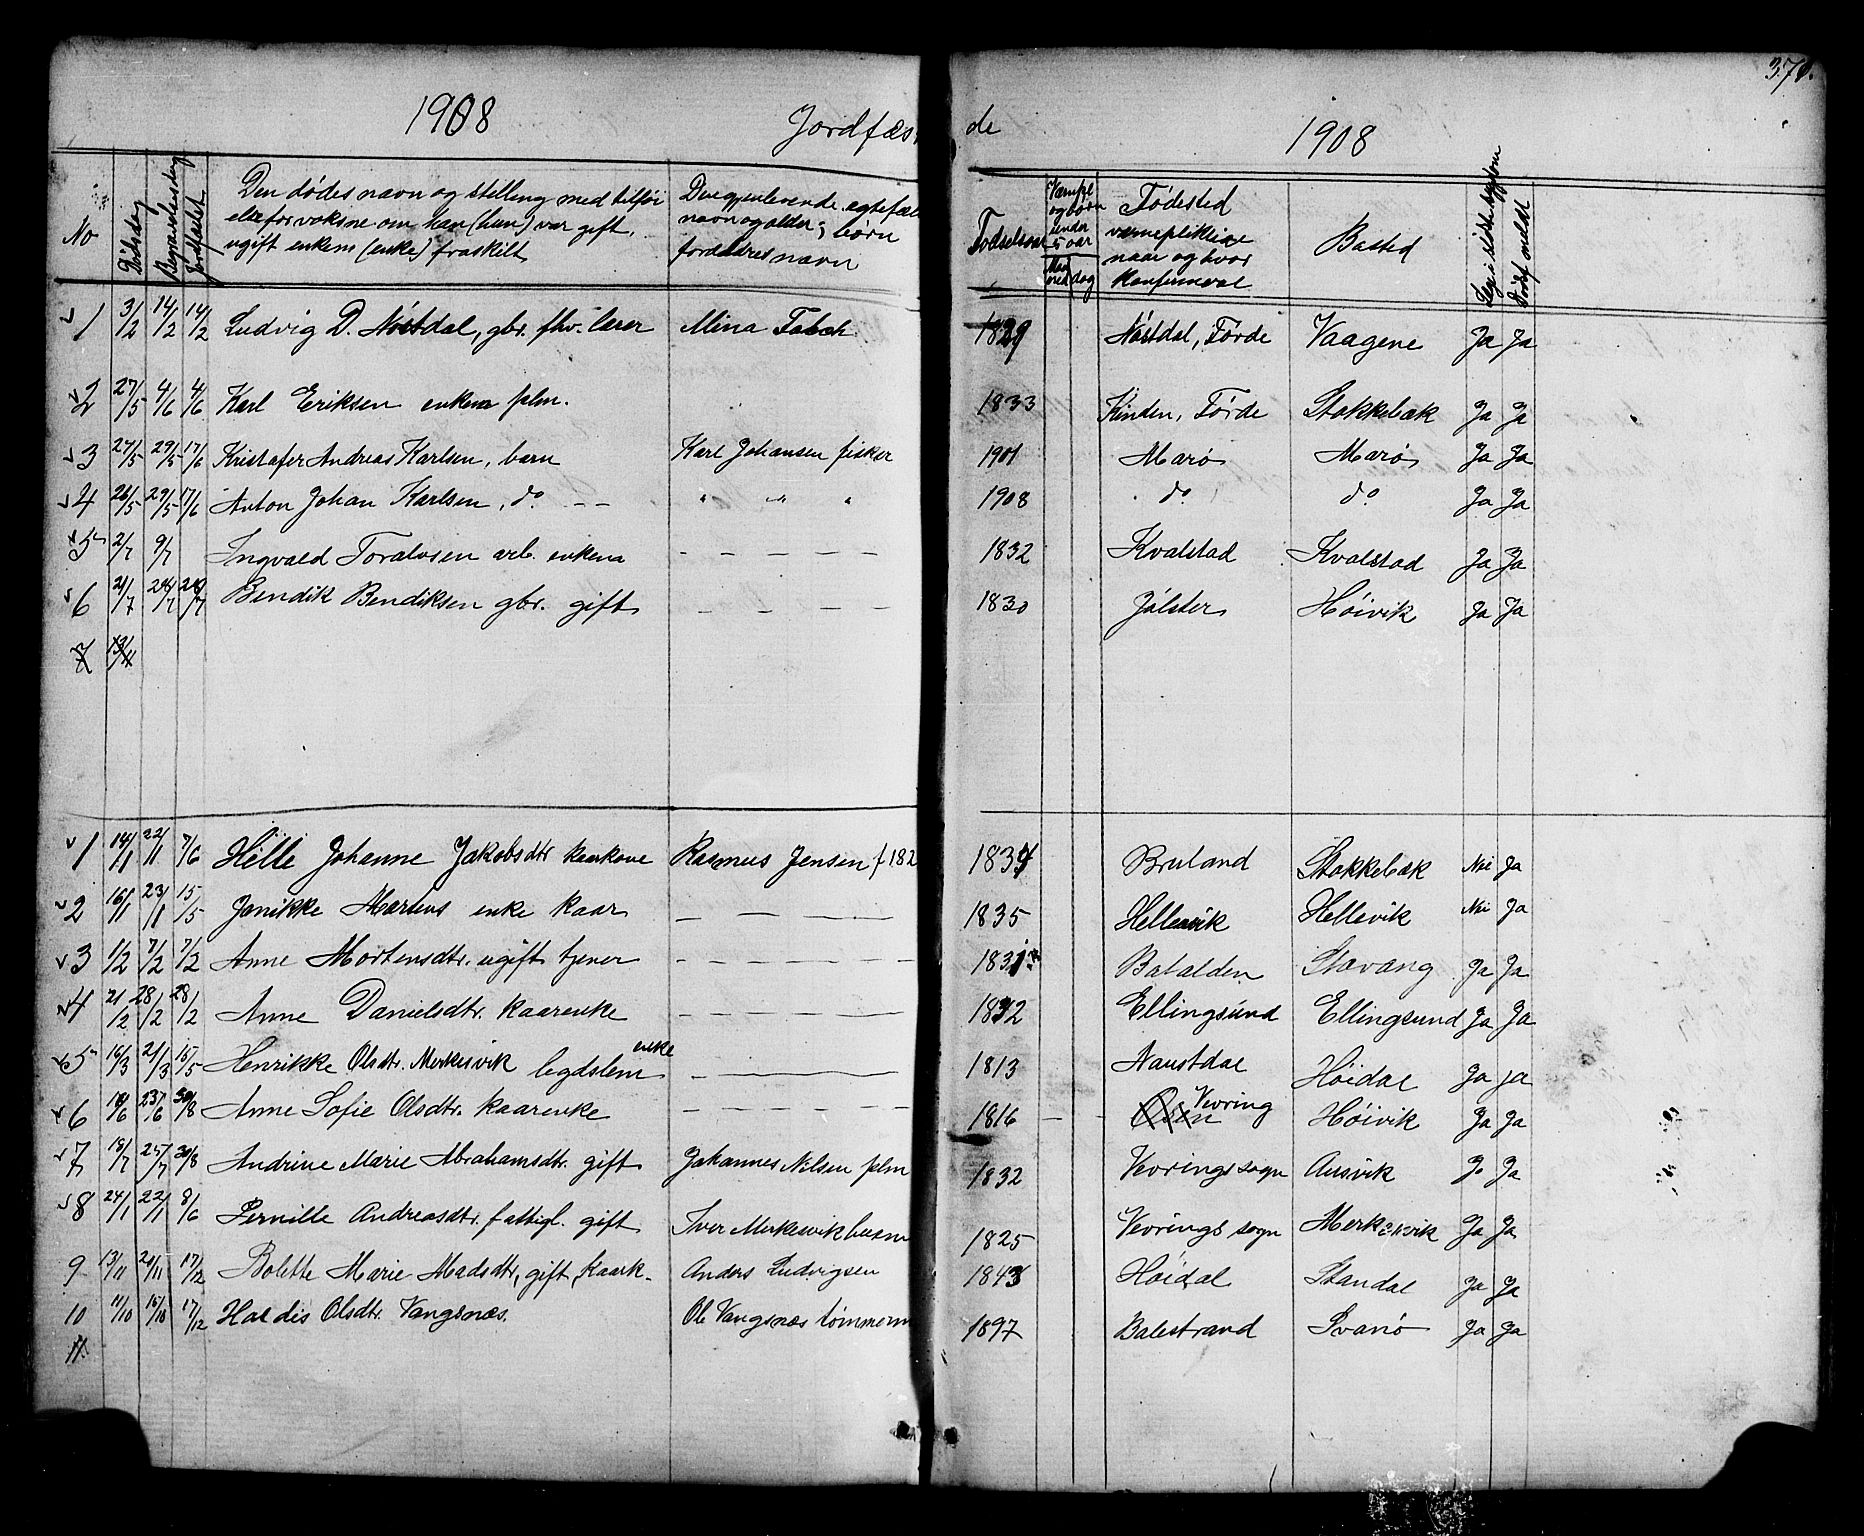 370.
1908 Jordfæs de 1908
No Dødsdag Begravelsesdag Jordfæstet Den dødes navn og stilling med tilføi Den gjenlevende egtefæl Fødselsaar Værnepl. Fødested Bosted
else for voksne om han (hun) var gift, navn og alder; børn og børn under 5 aar værnepliktige
ugift enkem (enke) fraskilt forældres navn Maaned dag naar og hvor konfirmeret
1 3/2 14/2 14/2 Ludvig D. Nøstdal, gbr. fhv. lærer Mina 1829 Nøstdal, Førde Vaagene Ja Ja
2 27/5 4/6 4/6 Karl Eriksen enkem plm. 1833 Kinden, Førde Stokkebæk Ja Ja
3 27/5 29/5 17/6 Kristofer Andreas Karlsen, barn Karl Johansen fisker 1901 Marø Marø Ja Ja
4 26/5 29/5 17/6 Anton Johan Karlsen, do. — — " " " 1908 do do Ja Ja
5 2/7 9/7 Ingvald Toralvsen arb. enkem — — — — — 1832 Kvalstad Kvalstad Ja Ja
6 21/7 28/7 28/7 Bendik Bendiksen gbr. gift — — — — — 1830 Jølster Høivik Ja Ja
7 13/11
1 14/1 22/1 7/6 Helle Johanne Jakobsdtr kaarkone Rasmus Jensen f 182 1834 Bruland Stokkebæk Nei Ja
2 16/1 23/1 15/5 Janikke Martens enke kaar — — — 1835 Hellesvik Hellevik Nei Ja
3 1/2 7/2 7/2 Anne Mortensdtr. ugift tjener — — — — — — 1831 Batalden Stavang Ja Ja
4 21/2 28/2 28/2 Anne Danielsdtr. kaarenke — — — — — — 1832 Ellingsund Ellingsund Ja Ja
5 16/3 21/3 15/5 Henrikke Olsdtr. Merkesvik legdslem enke — — — — 1813 Naustdal Høidal Ja ja
6 18/6 23/6 30/8 Anne Sofie Olsdtr. kaarenke — — — — — — 1816 — — Osen Vevring Høivik Ja Ja
7 19/7 25/7 30/8 Andrine Marie Abrahamsdtr. gift Johannes Nilsen plm 1832 Vevrings sogn Ausvik Ja Ja
8 24/1 22/1 8/6 Pernille Andreasdtr. fattigl. gift Iver Merkesvik husm 1825 Vevrings sogn Merkesvik Ja Ja
9 13/11 20/11 17/12 Bolette Marie Madsdtr, gift, kaark. Anders Ludvigsen 1843 Høidal Standal Ja Ja
10 11/10 16/10 17/12 Haldis Olsdtr. Vangsnæs. Ole Vangsnæs tømmerm 1897 Balestrand Svanø Ja Ja
11.